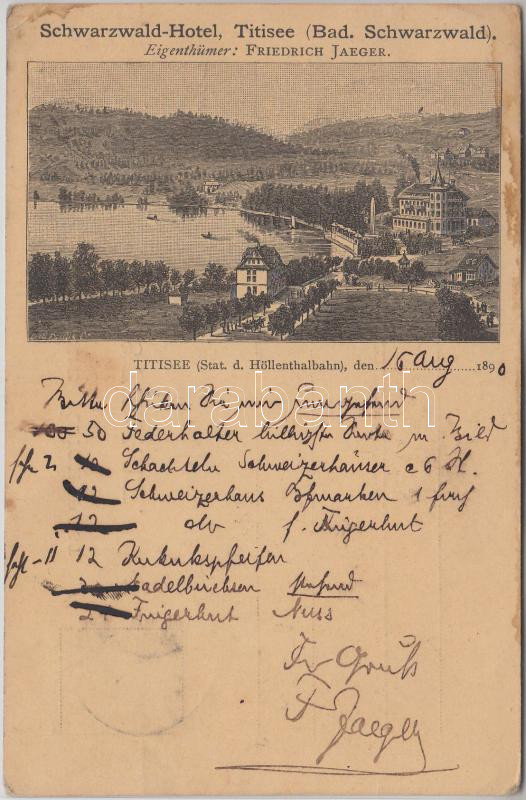 Schwarzwald-Hotel, Titisee (Bad. Schwarzwald).
Eigenthümer: FRIEDRICH JAEGER.
TITISEE (Stat. d. Höllenthalbahn), den 16 Aug 1890
Bitte senden Sie mir umgehend
50 Federhalter billigste m. Bild
Schachteln Schweizerhäuser
12 Schweizerhaus 1 fach
12 do f. Fingerhut
12 Kukukspfeifen
Nadelbüchsen
Fingerhut Nuss
Fr Gruß
F Jaeger
darabanth